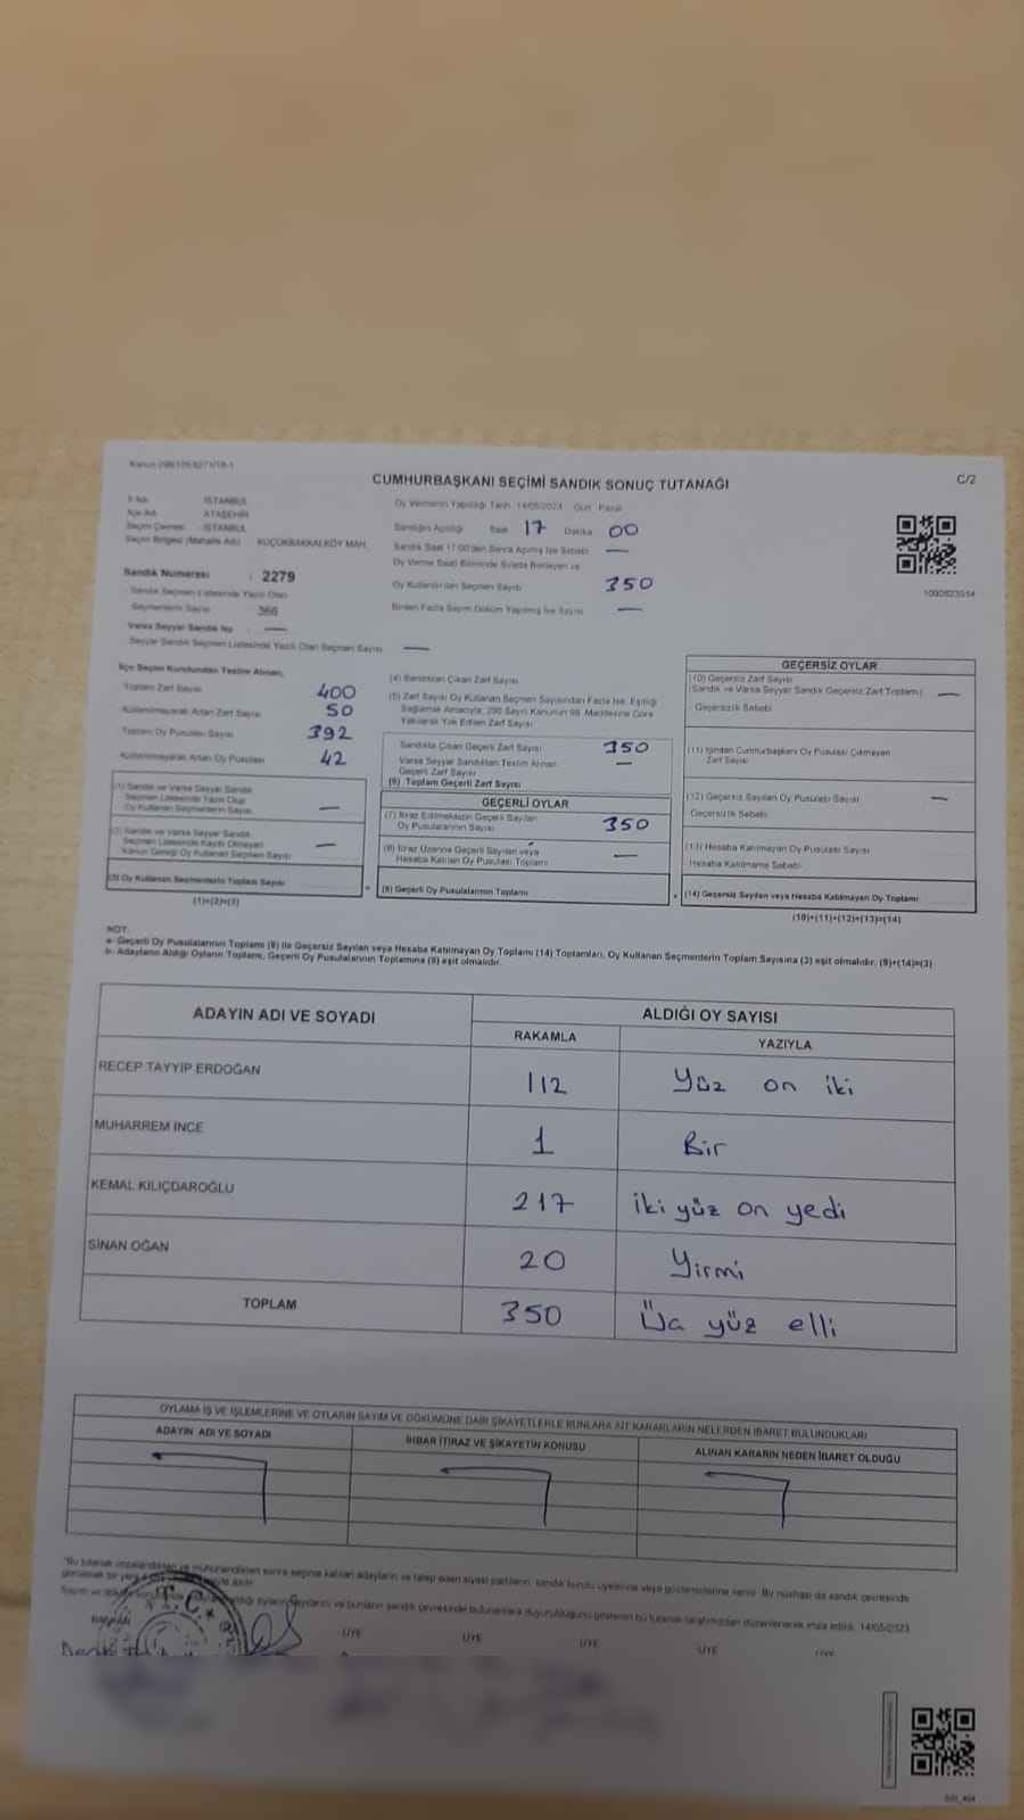 CUMHURBAŞKANI SEÇİMİ SANDIK SONUÇ TUTANAĞI
C/2
İSTANBUL
ATAŞEHİR
İSTANBUL
KÜÇÜKBAKKALKÖY MAH.
Sandık Numarası : 2279
Sandık Seçmen Listesinde Yazılı Olan
Seçmenlerin Sayısı 366
Varsa Seyyar Sandık No —
Seyyar Sandık Seçmen Listesinde Yazılı Olan Seçmen Sayısı —
Oy Vermenin Yapıldığı Tarih 14/05/2023 Gün Pazar
Sandığın Açıldığı Saat 17 Dakika 00
Sandık Saat 17:00'den Sonra Açılmış İse Sebebi —
Oy Kullandırılan Seçmen Sayısı 350
Birden Fazla Sayım Döküm Yapılmış İse Sayısı —
İlçe Seçim Kurulundan Teslim Alınan;
Toplam Zarf Sayısı 400
Kullanılmayarak Artan Zarf Sayısı 50
Toplam Oy Pusulası Sayısı 392
Kullanılmayarak Artan Oy Pusulası 42
(1) Sandık ve Varsa Seyyar Sandık
Seçmen Listesinde Yazılı Olup
Oy Kullanan Seçmenlerin Sayısı —
(2) Sandık ve varsa Seyyar Sandık
Seçmen Listesinde Kayıtlı Olmayan
Kanun Gereği Oy Kullanan Seçmen Sayısı —
(3) Oy Kullanan Seçmenlerin Toplam Sayısı
(1)+(2)=(3)
(4) Sandıktan Çıkan Zarf Sayısı
(5) Zarf Sayısı Oy Kullanan Seçmen Sayısından Fazla İse, Eşitliği
Sağlamak Amacıyla, 298 Sayılı Kanunun 98. Maddesine Göre
Yakılarak Yok Edilen Zarf Sayısı
Sandıkta Çıkan Geçerli Zarf Sayısı 350
Varsa Seyyar Sandıktan Teslim Alınan
Geçerli Zarf Sayısı —
(6) Toplam Geçerli Zarf Sayısı
GEÇERLİ OYLAR
(7) İtiraz Edilmeksizin Geçerli Sayılan
Oy Pusulalarının Sayısı 350
(8) İtiraz Üzerine Geçerli Sayılan veya
Hesaba Katılan Oy Pusulası Toplamı —
(9) Geçerli Oy Pusulalarının Toplamı
GEÇERSİZ OYLAR
(10) Geçersiz Zarf Sayısı
(Sandık ve Varsa Seyyar Sandık Geçersiz Zarf Toplamı) —
Geçersizlik Sebebi
(11) İçinden Cumhurbaşkanı Oy Pusulası Çıkmayan
Zarf Sayısı
(12) Geçersiz Sayılan Oy Pusulası Sayısı —
Geçersizlik Sebebi
(13) Hesaba Katılmayan Oy Pusulası Sayısı
Hesaba Katılmama Sebebi
(14) Geçersiz Sayılan veya Hesaba Katılmayan Oy Toplamı
(10)+(11)+(12)+(13)=(14)
NOT:
a- Geçerli Oy Pusulalarının Toplamı (9) ile Geçersiz Sayılan veya Hesaba Katılmayan Oy Toplamı (14) Toplamları, Oy Kullanan Seçmenlerin Toplam Sayısına (3) eşit olmalıdır. (9)+(14)=(3)
b- Adayların Aldığı Oyların Toplamı, Geçerli Oy Pusulalarının Toplamına (9) eşit olmalıdır.
ADAYIN ADI VE SOYADI
ALDIĞI OY SAYISI
RAKAMLA
YAZIYLA
RECEP TAYYİP ERDOĞAN 112 Yüz on iki
MUHARREM İNCE 1 Bir
KEMAL KILIÇDAROĞLU 217 iki yüz on yedi
SİNAN OĞAN 20 Yirmi
TOPLAM 350 Üç yüz elli
OYLAMA İŞ VE İŞLEMLERİNE VE OYLARIN SAYIM VE DÖKÜMÜNE DAİR ŞİKAYETLERLE BUNLARA AİT KARARLARIN NELERDEN İBARET BULUNDUKLARI
ADAYIN ADI VE SOYADI
İHBAR İTİRAZ VE ŞİKAYETİN KONUSU
ALINAN KARARIN NEDEN İBARET OLDUĞU
T.C.
BAŞKAN
ÜYE
ÜYE
ÜYE
ÜYE
ÜYE